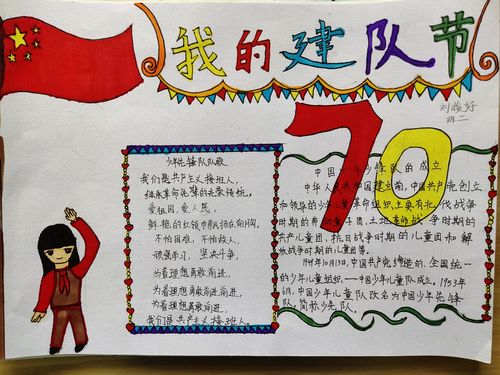 我的建队节
刘悛好
四.二
70
少先锋队队歌
我们是共产主义接班人,
继承革命先辈的光荣传统,
爱祖国,爱人民,
鲜艳的红领巾飘扬在前胸,
不怕困难,不怕敌人,
顽强学习,坚决斗争,
向着理想勇敢前进,
为着理想勇敢前进前进,
为着理想勇敢前进,
我们是共产主义接班人.
中国少年少锋队的成立
中华人民共和国建立前,中国共产党创立
和领导的少年儿童革命组织主要有北伐战争
时期的劳动童子团,土地革命战争时期的
共产儿童团,抗日战争时期的儿童团和解
放战争时期的儿童团等。
1949年10月13日,中国共产党缔造的,全国统一
的少年儿童组织——中国少年儿童队成立。1953年
6月,中国少年儿童队改名为中国少年先锋
队,简称少先队。